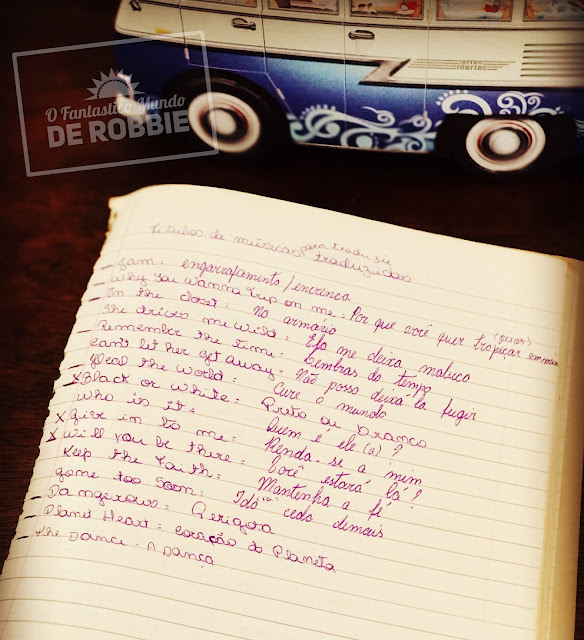 O Fantastico Mundo
DE ROBBIE
Titulos de músicas para traduzir
traduzidas
– Jam: engarrafamento/encrenca
– Why you wanna trip on me: Por que você quer tropeçar em mim
– In the closet: No armario
– She drives me wild: Ela me deixa maluco
– Remember the time: Lembras do tempo
– Can't let her get away: Não posso deixa la fugir
– Heal the world: Cure o mundo
x Black or white: Preto ou branco
Who is it: Quem é ele (a)?
x Give in to me: Renda-se a mim
x Will you be there: Você estará lá?
Keep the Faith: Mantenha a fé
gone too soon: Idó cedo demais
– Dangerous: Perigosa
– Planet Heart: coração do Planeta
– The Dance: A Dança